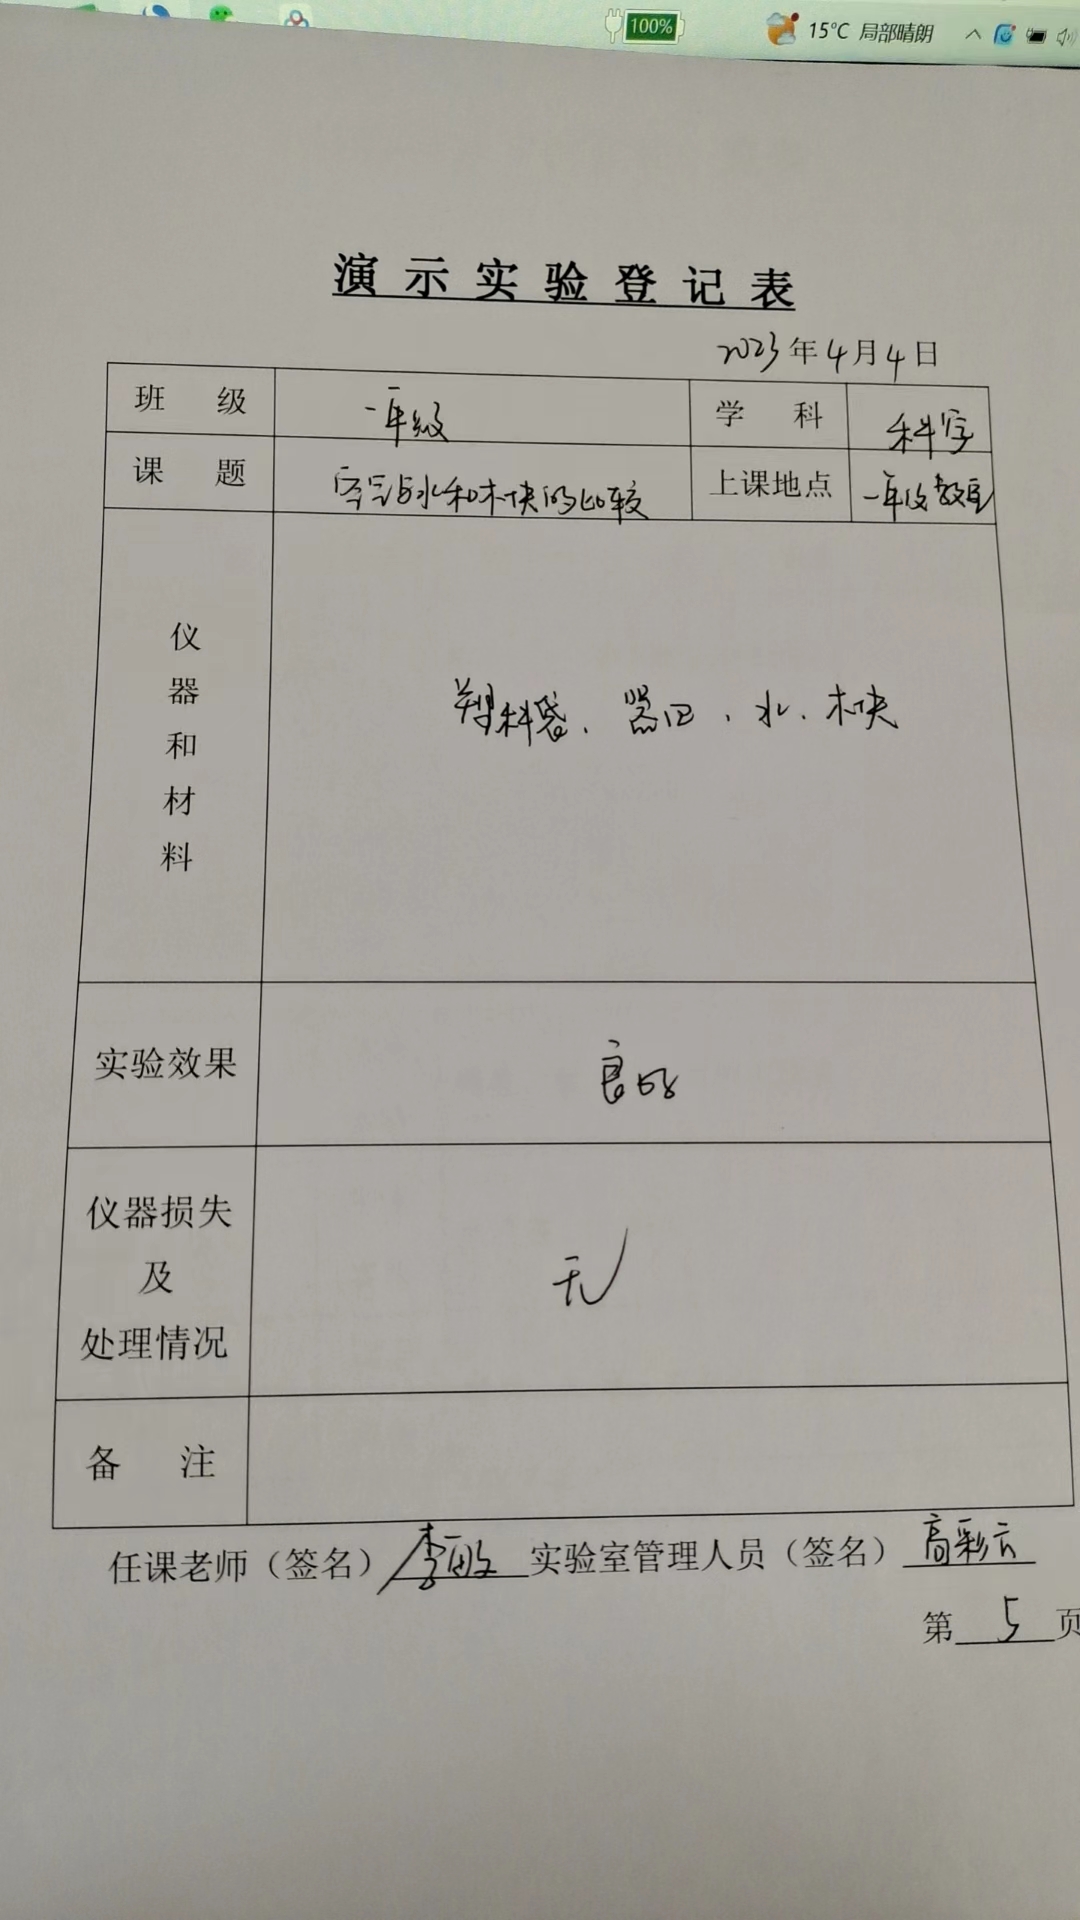 100%
15°C 局部晴朗
演示实验登记表
2023年4月4日
班 级 一年级 学 科 科学
课 题 空气与水和木块的比较 上课地点 一年级教室
仪器和材料 塑料袋、器皿、水、木块
实验效果 良好
仪器损失
及 无
处理情况
备 注
任课老师（签名）李敏 实验室管理人员（签名）高彩云
第 5 页